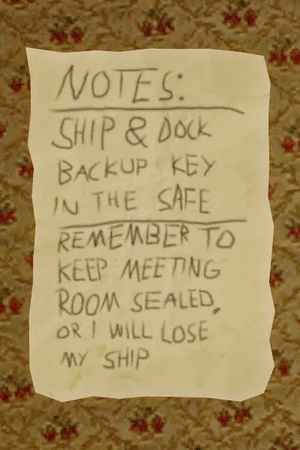 NOTES:
SHIP & DOCK
BACKUP KEY
IN THE SAFE
REMEMBER TO
KEEP MEETING
ROOM SEALED,
OR I WILL LOSE
MY SHIP